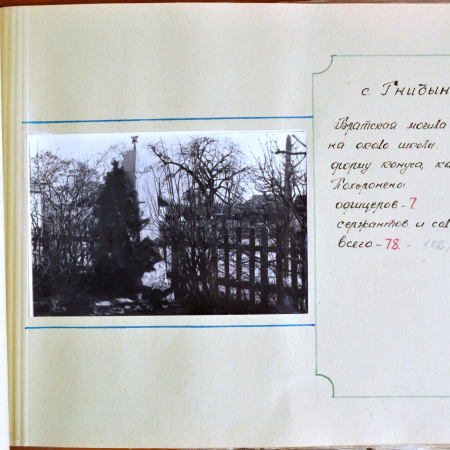 с. Гнибын
Братская могила
на около школы.
форму конуса, ка
Похоронено:
офицеров - 7.
сержантов и сол
всего - 78. - 102